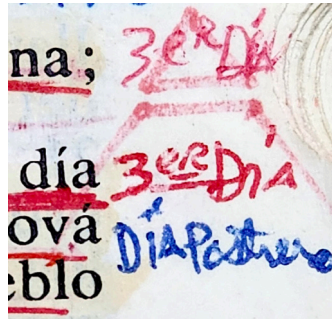 na; 3er DíA
día 3er DíA
ová DíA Postrero
eblo